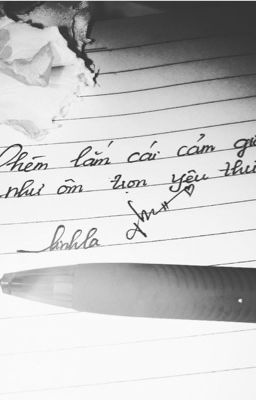 Thèm lắm cái cảm gi
như ôm trọn yêu thư
linhla